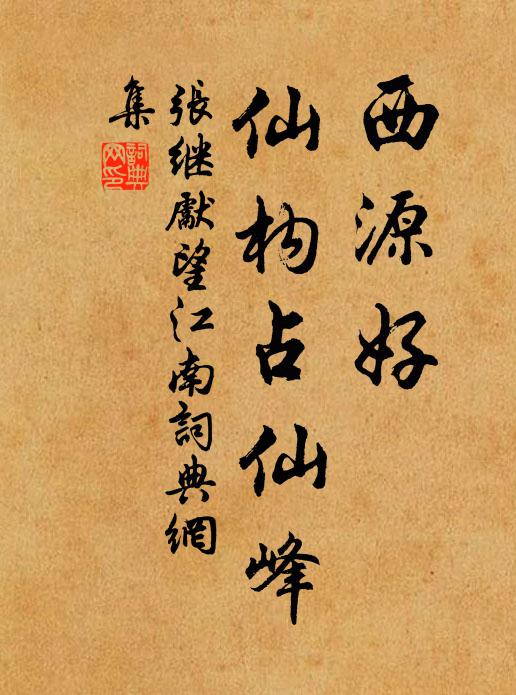 西源好
仙构占仙峰
張继獻望江南詞典網
集
詞典网印